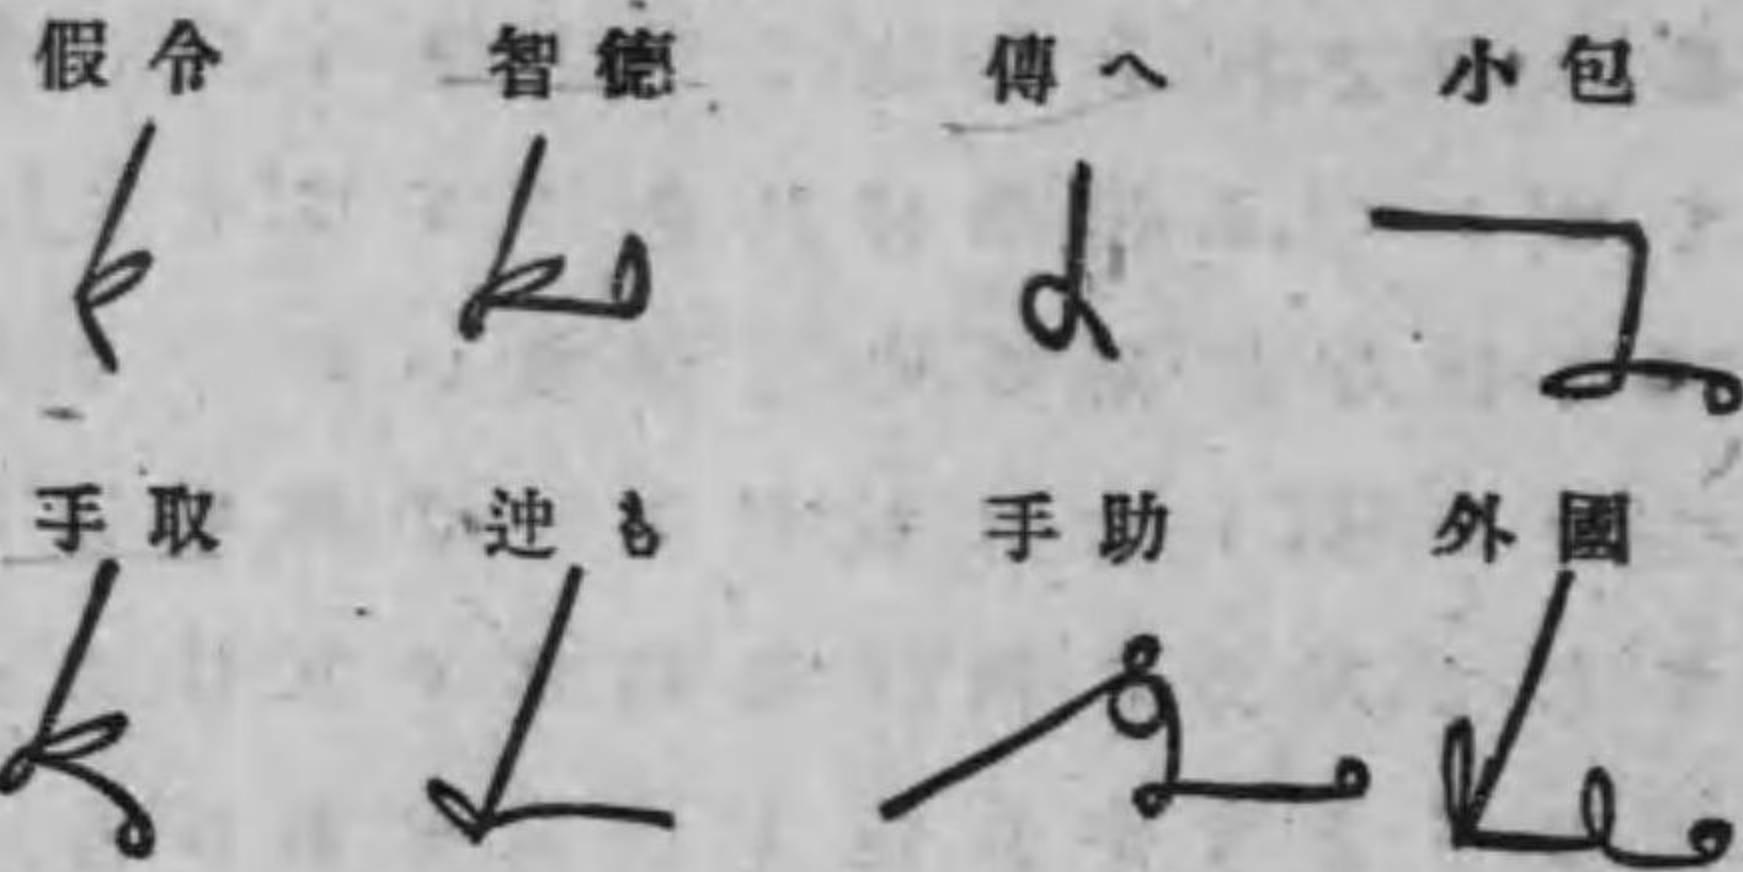 假令 智德 傳へ 小包
手取 迚も 手助 外國